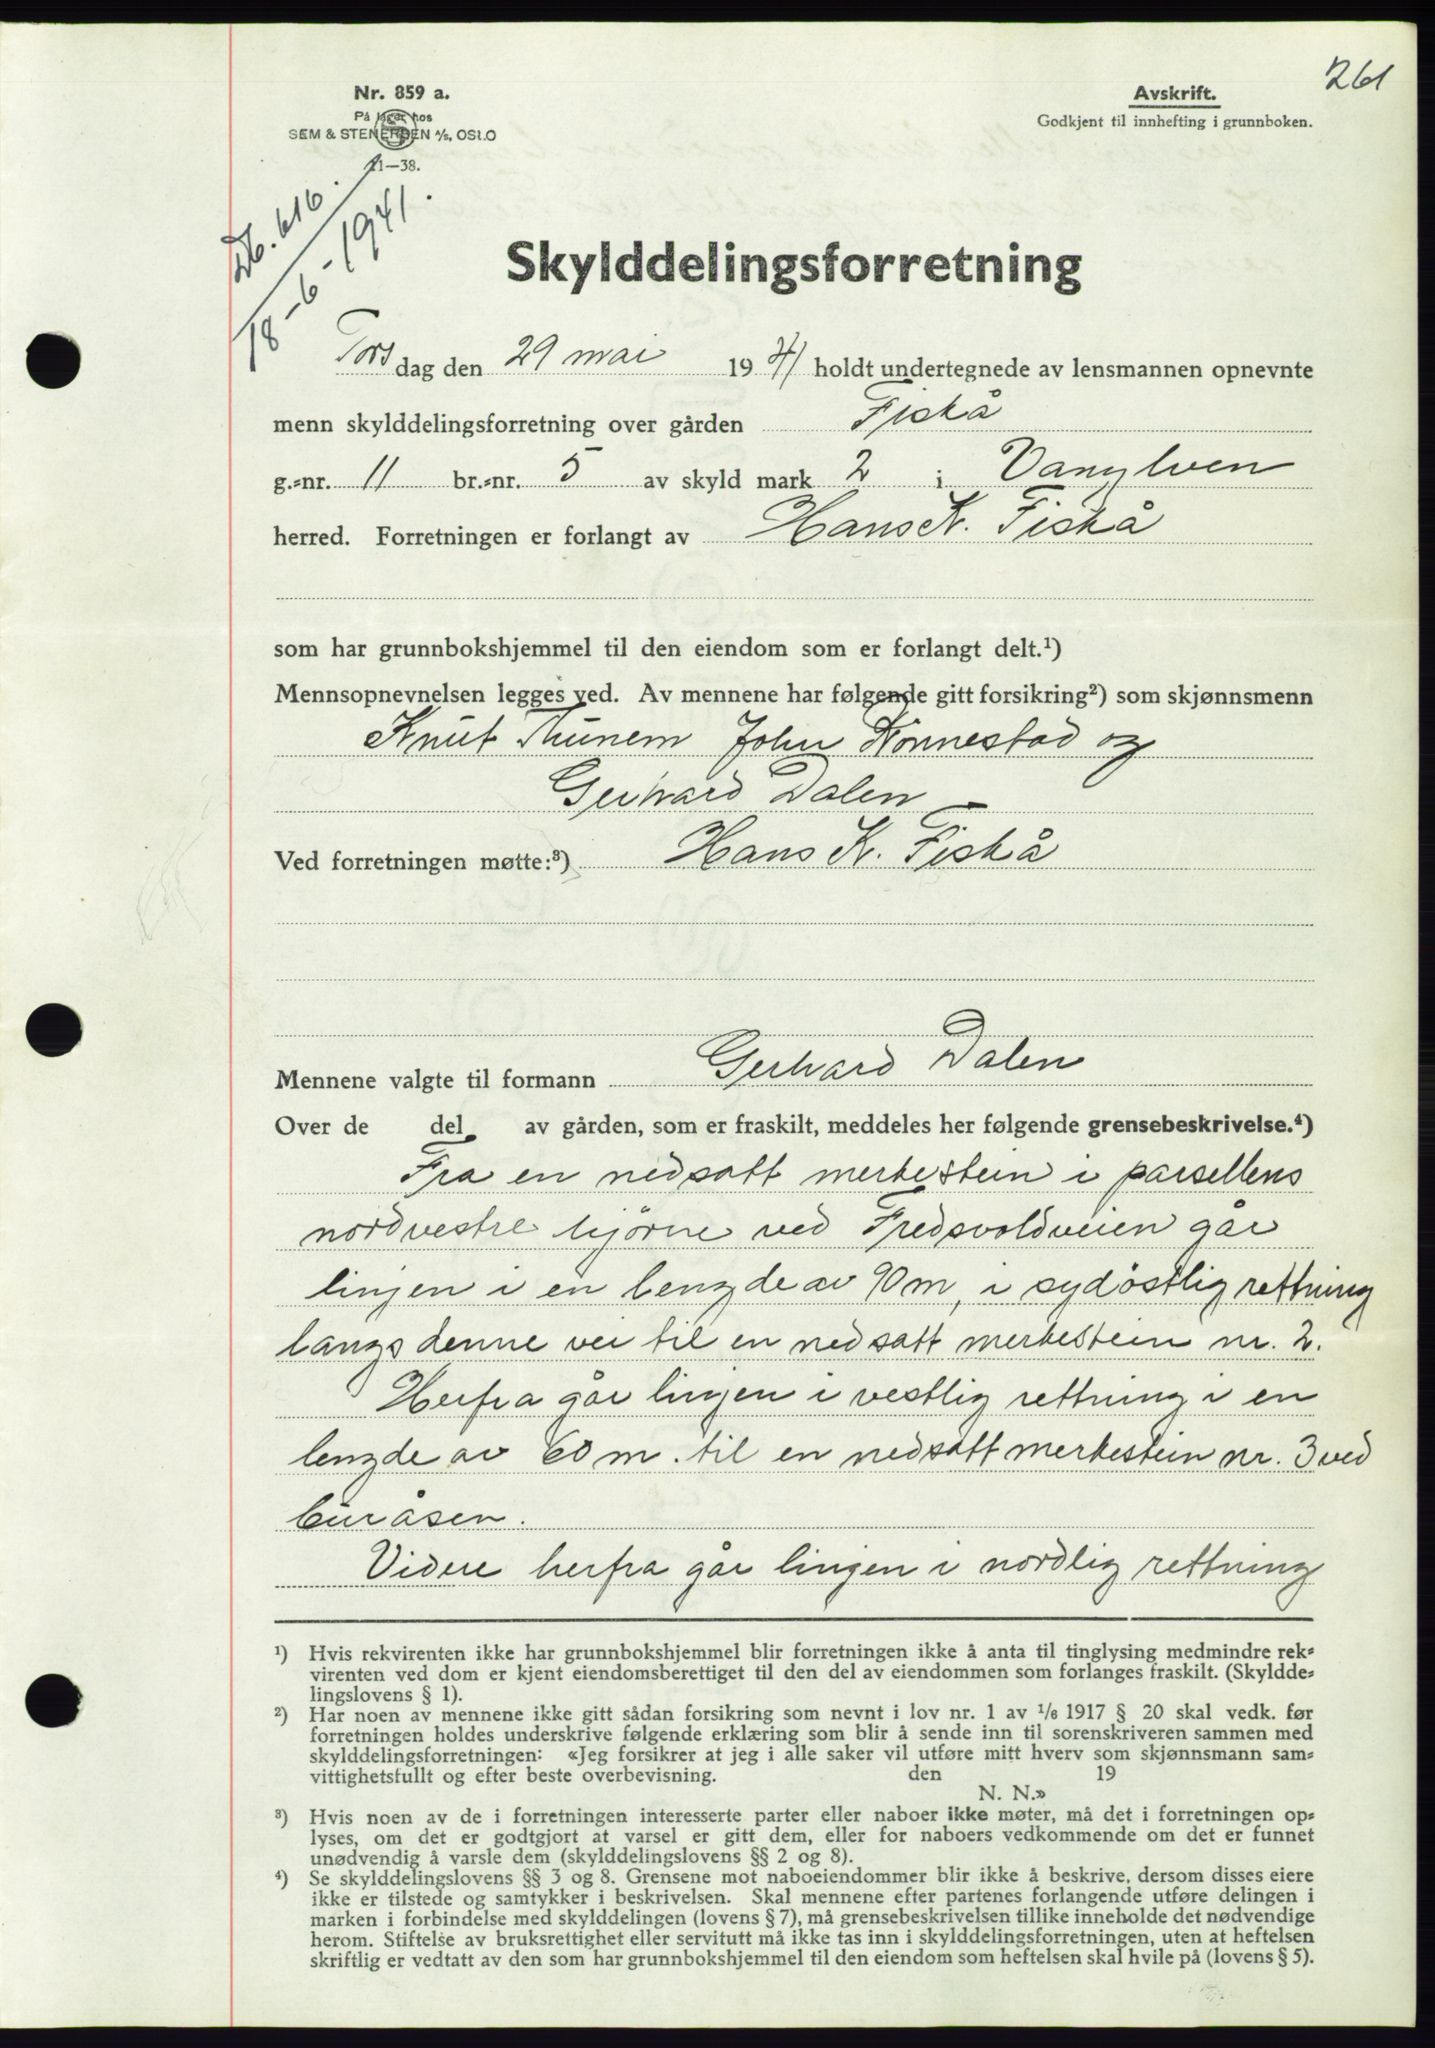 261
Nr. 859 a.
På lager hos
SEM & STENERSEN A/S, OSLO
11—38.
Avskrift.
Godkjent til innhefting i grunnboken.
Db. 616.
18-6-1941.
Skylddelingsforretning
Torsdag den 29 mai 1941 holdt undertegnede av lensmannen opnevnte
menn skylddelingsforretning over gården Fiskå
g.-nr. 11 br.-nr. 5 av skyld mark 2 i Vanylven
herred. Forretningen er forlangt av Hans K. Fiskå
som har grunnbokshjemmel til den eiendom som er forlangt delt.¹)
Mennsopnevnelsen legges ved. Av mennene har følgende gitt forsikring²) som skjønnsmenn
Knut Thunem John Rönnestad og
Gerhard Dalen
Ved forretningen møtte:³) Hans K. Fiskå
Mennene valgte til formann Gerhard Dalen
Over de del av gården, som er fraskilt, meddeles her følgende grensebeskrivelse.⁴)
Fra en nedsatt merkestein i parsellens
nordvestre hjörne ved Fredsvoldveien går
linjen i en lengde av 90 m, i sydöstlig rettning
langs denne vei til en nedsatt merkestein nr. 2.
Herfra går linjen i vestlig rettning i en
lengde av 60 m. til en nedsatt merkestein nr. 3 ved
Buråsen.
Videre herfra går linjen i nordlig rettning
¹) Hvis rekvirenten ikke har grunnbokshjemmel blir forretningen ikke å anta til tinglysing medmindre rek-
virenten ved dom er kjent eiendomsberettiget til den del av eiendommen som forlanges fraskilt. (Skyldde-
lingslovens § 1).
²) Har noen av mennene ikke gitt sådan forsikring som nevnt i lov nr. 1 av 1/6 1917 § 20 skal vedk. før
forretningen holdes underskrive følgende erklæring som blir å sende inn til sorenskriveren sammen med
skylddelingsforretningen: «Jeg forsikrer at jeg i alle saker vil utføre mitt hverv som skjønnsmann sam-
vittighetsfullt og efter beste overbevisning. den 19
N. N.»
³) Hvis noen av de i forretningen interesserte parter eller naboer ikke møter, må det i forretningen op-
lyses, om det er godtgjort at varsel er gitt dem, eller for naboers vedkommende om det er funnet
unødvendig å varsle dem (skylddelingslovens §§ 2 og 8).
⁴) Se skylddelingslovens §§ 3 og 8. Grensene mot naboeiendommer blir ikke å beskrive, dersom disses eiere
ikke er tilstede og samtykker i beskrivelsen. Skal mennene efter partenes forlangende utføre delingen i
marken i forbindelse med skylddelingen (lovens § 7), må grensebeskrivelsen tillike inneholde det nødvendige
herom. Stiftelse av bruksrettighet eller servitutt må ikke tas inn i skylddelingsforretningen, uten at heftelsen
skriftlig er vedtatt av den som har grunnbokshjemmel til den eiendom som heftelsen skal hvile på (lovens § 5).